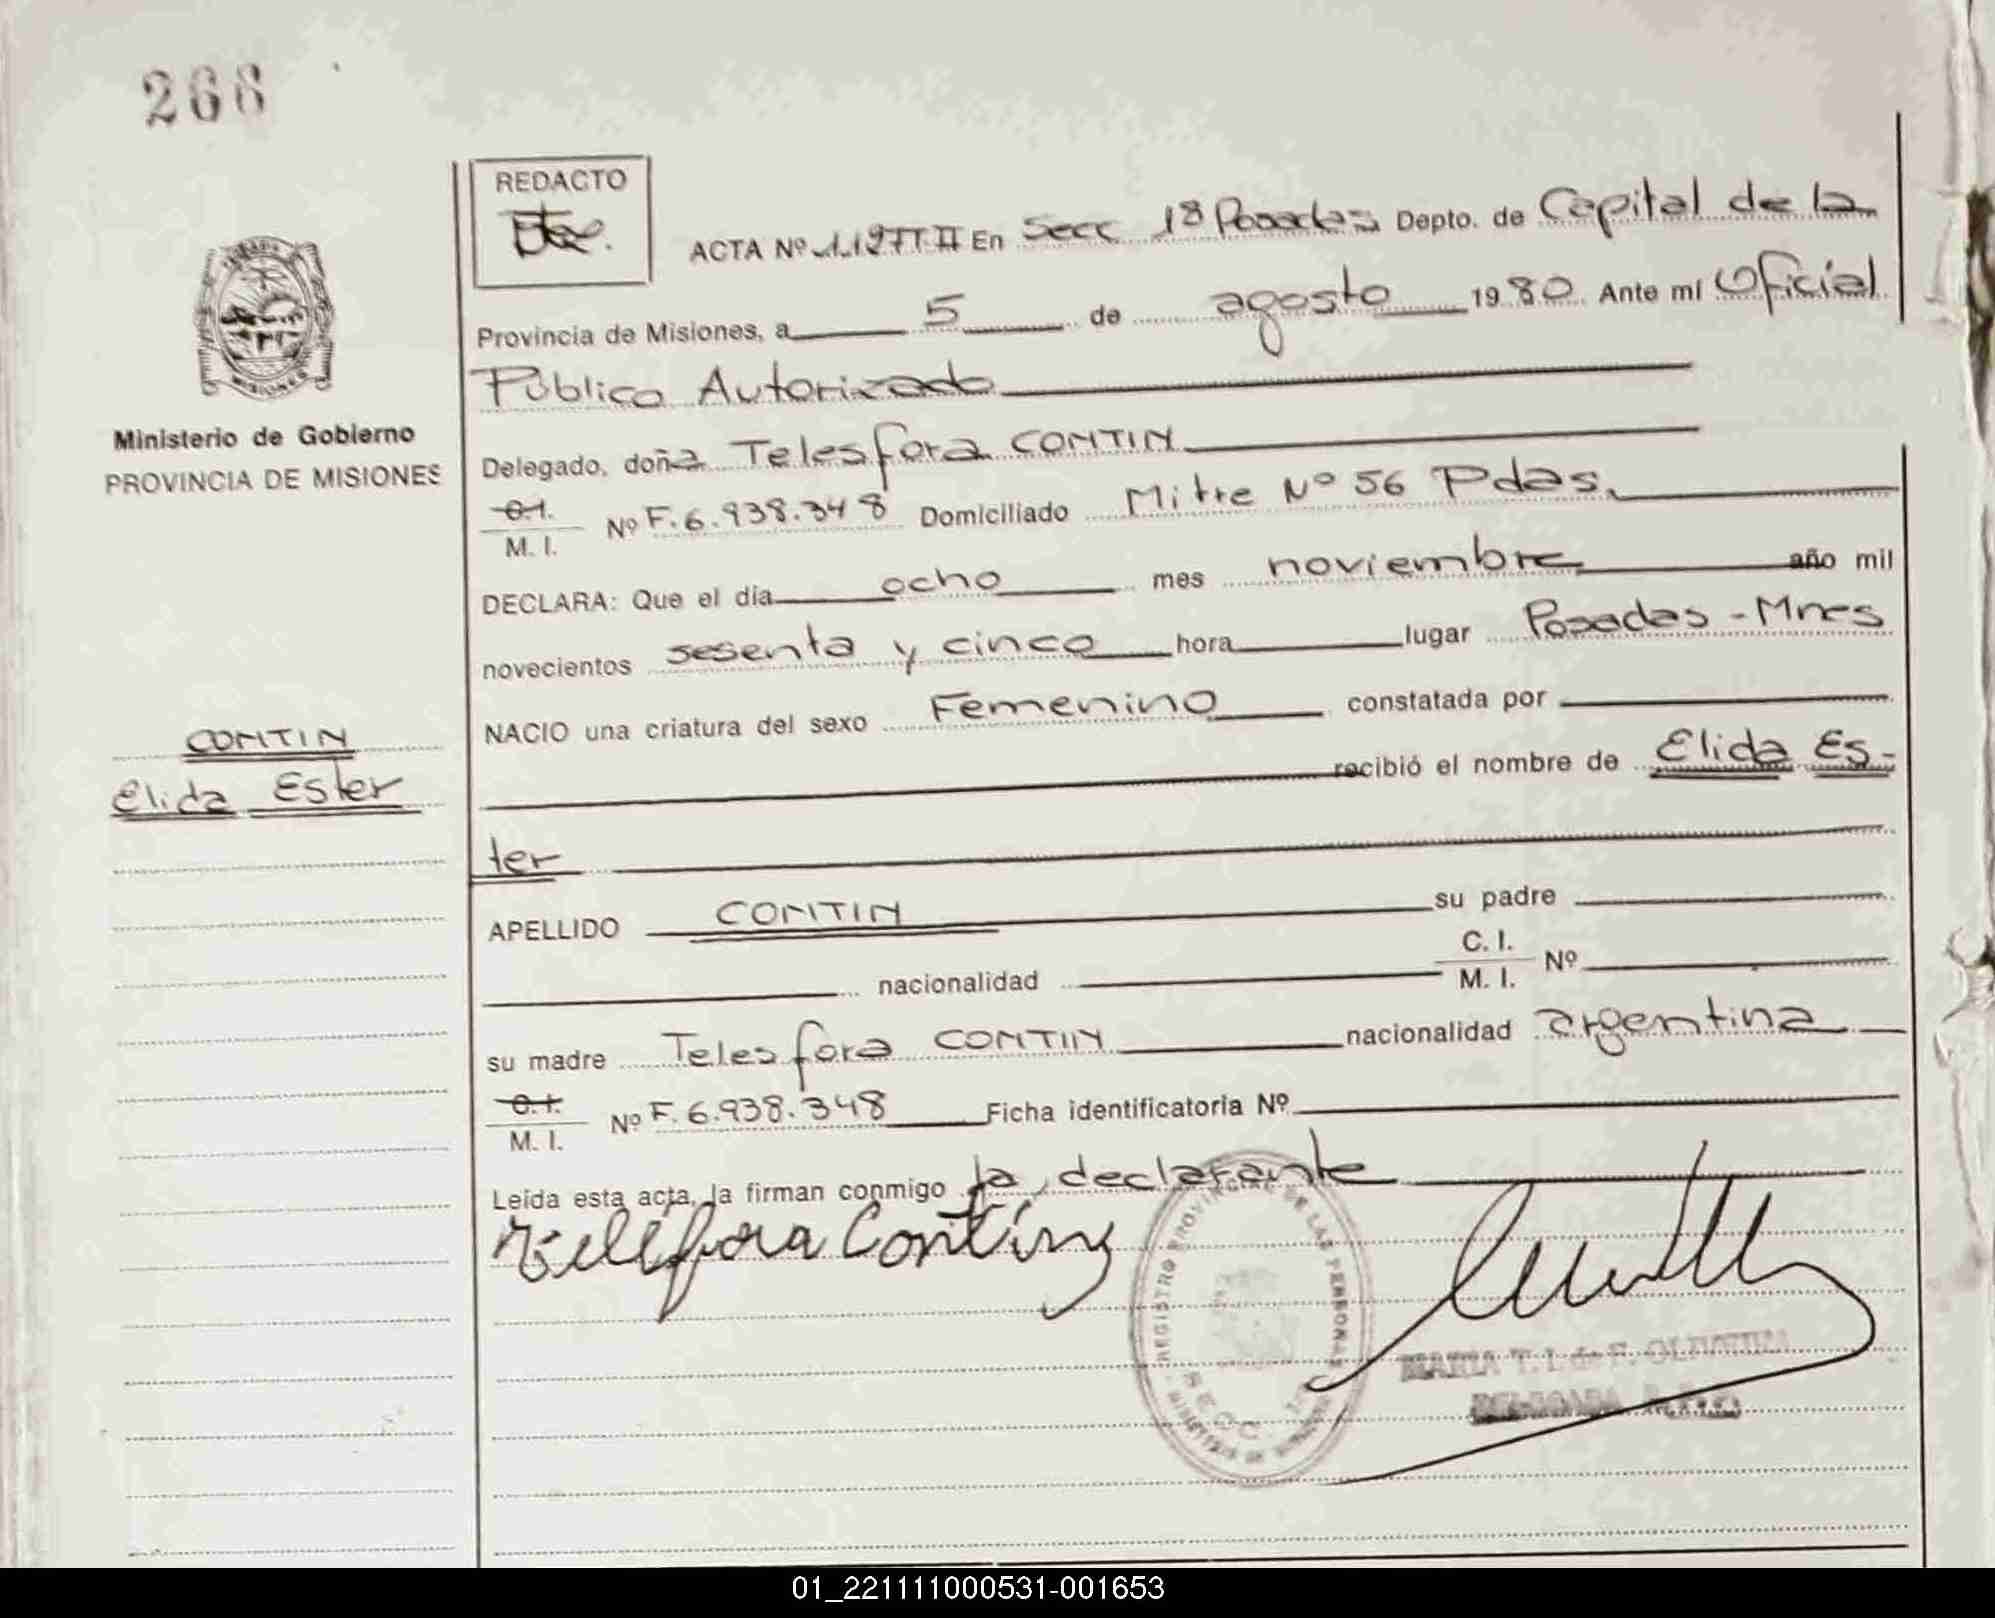 266
REDACTO
ACTA Nº 1197 T. II En Secc 1ª Posadas Depto. de Capital de la
Provincia de Misiones, a 5 de agosto 1980 Ante mí Oficial
Público Autorizado
Ministerio de Gobierno
PROVINCIA DE MISIONES
Delegado, doña Telesfora CONTIN
C.I.
M. I. Nº F. 6.938.348 Domiciliado Mitre Nº 56 Pdas.
DECLARA: Que el día ocho mes noviembre año mil
novecientos sesenta y cinco hora lugar Posadas - Mnes
NACIO una criatura del sexo Femenino constatada por
CONTIN
Elida Ester
recibió el nombre de Elida Es-
ter
APELLIDO CONTIN su padre
nacionalidad C. I.
M. I. Nº
su madre Telesfora CONTIN nacionalidad argentina
C.I.
M. I. Nº F. 6.938.348 Ficha identificatoria Nº
Leída esta acta, la firman conmigo la declarante
Telesfora Contin
REGISTRO PROVINCIAL DE LAS PERSONAS
SECC.
MARIA T. I. de F. OLIVEIRA
DELEGADA
01_221111000531-001653